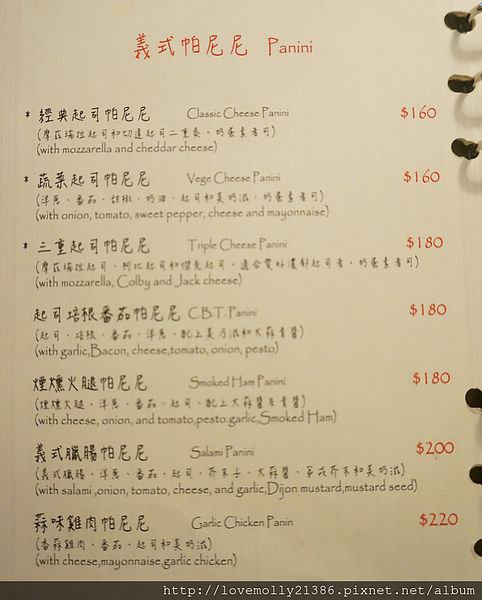 義式帕尼尼 Panini
* 經典起司帕尼尼 Classic Cheese Panini $160
(摩茲瑞拉起司和切達起司二重奏,奶蛋素者可)
(with mozzarella and cheddar cheese)
* 蔬菜起司帕尼尼 Vege Cheese Panini $160
(洋蔥、番茄、甜椒、奶油、起司和美奶滋、奶蛋素者可)
(with onion, tomato, sweet pepper, cheese and mayonnaise)
* 三重起司帕尼尼 Triple Cheese Panini $180
(摩茲瑞拉起司、柯比起司和傑克起司,適合愛好濃郁起司者,奶蛋素者可)
(with mozzarella, Colby and Jack cheese)
起司培根番茄帕尼尼 C.B.T. Panini $180
(起司、培根、番茄、洋蔥、配上美乃滋和大蒜青醬)
(with garlic,Bacon, cheese,tomato, onion, pesto)
煙燻火腿帕尼尼 Smoked Ham Panini $180
(煙燻火腿、洋蔥、番茄、起司、配上大蒜醬及青醬)
(with cheese, onion, and tomato,pesto,garlic,Smoked Ham)
義式臘腸帕尼尼 Salami Panini $200
(義式臘腸、洋蔥、番茄、起司、芥末子、大蒜醬、第戎芥末和美奶滋)
(with salami ,onion, tomato, cheese, and garlic,Dijon mustard,mustard seed)
蒜味雞肉帕尼尼 Garlic Chicken Panin $220
(香蒜雞肉、番茄、起司和美奶滋)
(with cheese,mayonnaise,garlic chicken)
http://lovemolly21386.pixnet.net/album